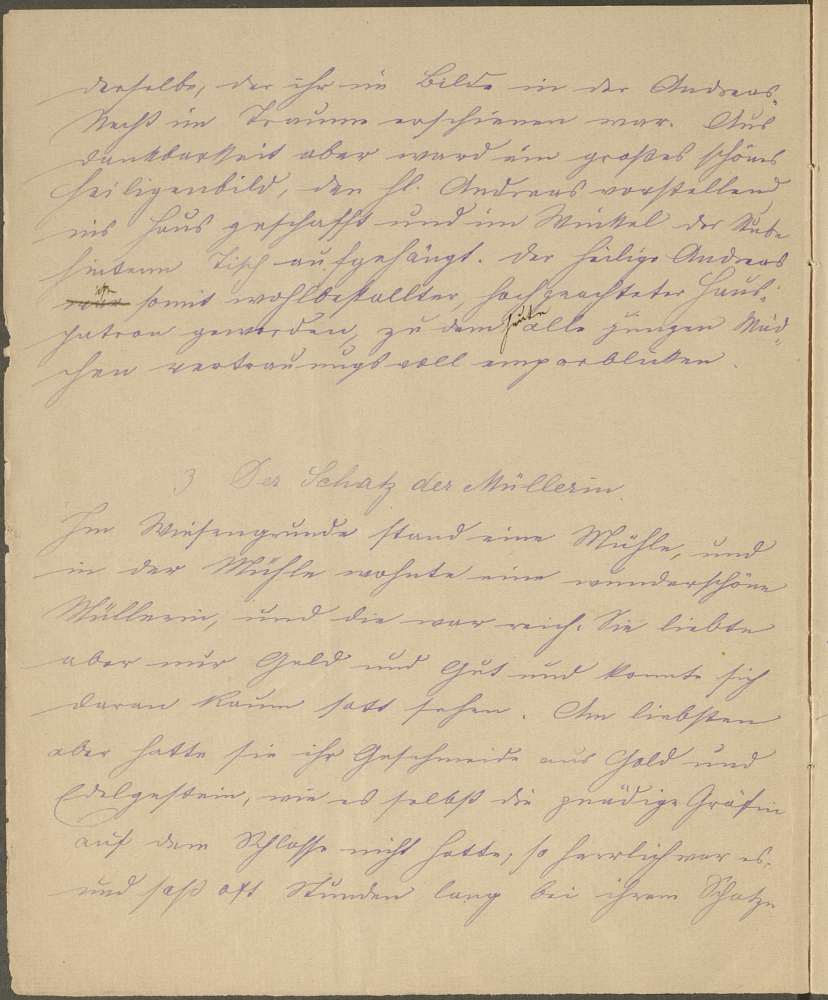 derselbe, der ihr im Bilde in der Andreas-
Nacht im Traume erschienen war. Aus
Dankbarkeit aber ward ein großes schönes
Heiligenbild, den hl. Andreas vorstellend
ins Haus geschafft und im Winkel der Stube
hinterm Tisch aufgehängt. Der heilige Andreas
ist somit wohlbestallter, hochgeachteter Haus-
patron geworden, zu dem heute alle jungen Mäd-
chen vertrauungsvoll emporblicken.
3 Der Schatz der Müllerin.
Im Wiesengrunde stand eine Mühle, und
in der Mühle wohnte eine wunderschöne
Müllerin, und die war reich. Sie liebte
aber nur Geld und Gut und konnte sich
daran kaum satt sehen. Am liebsten
aber hatte sie ihr Geschmeide aus Gold und
Edelgestein, wie es selbst die gnädige Gräfin
auf dem Schlosse nicht hatte, so herrlich war es.
und saß oft Stunden lang bei ihrem Schatze